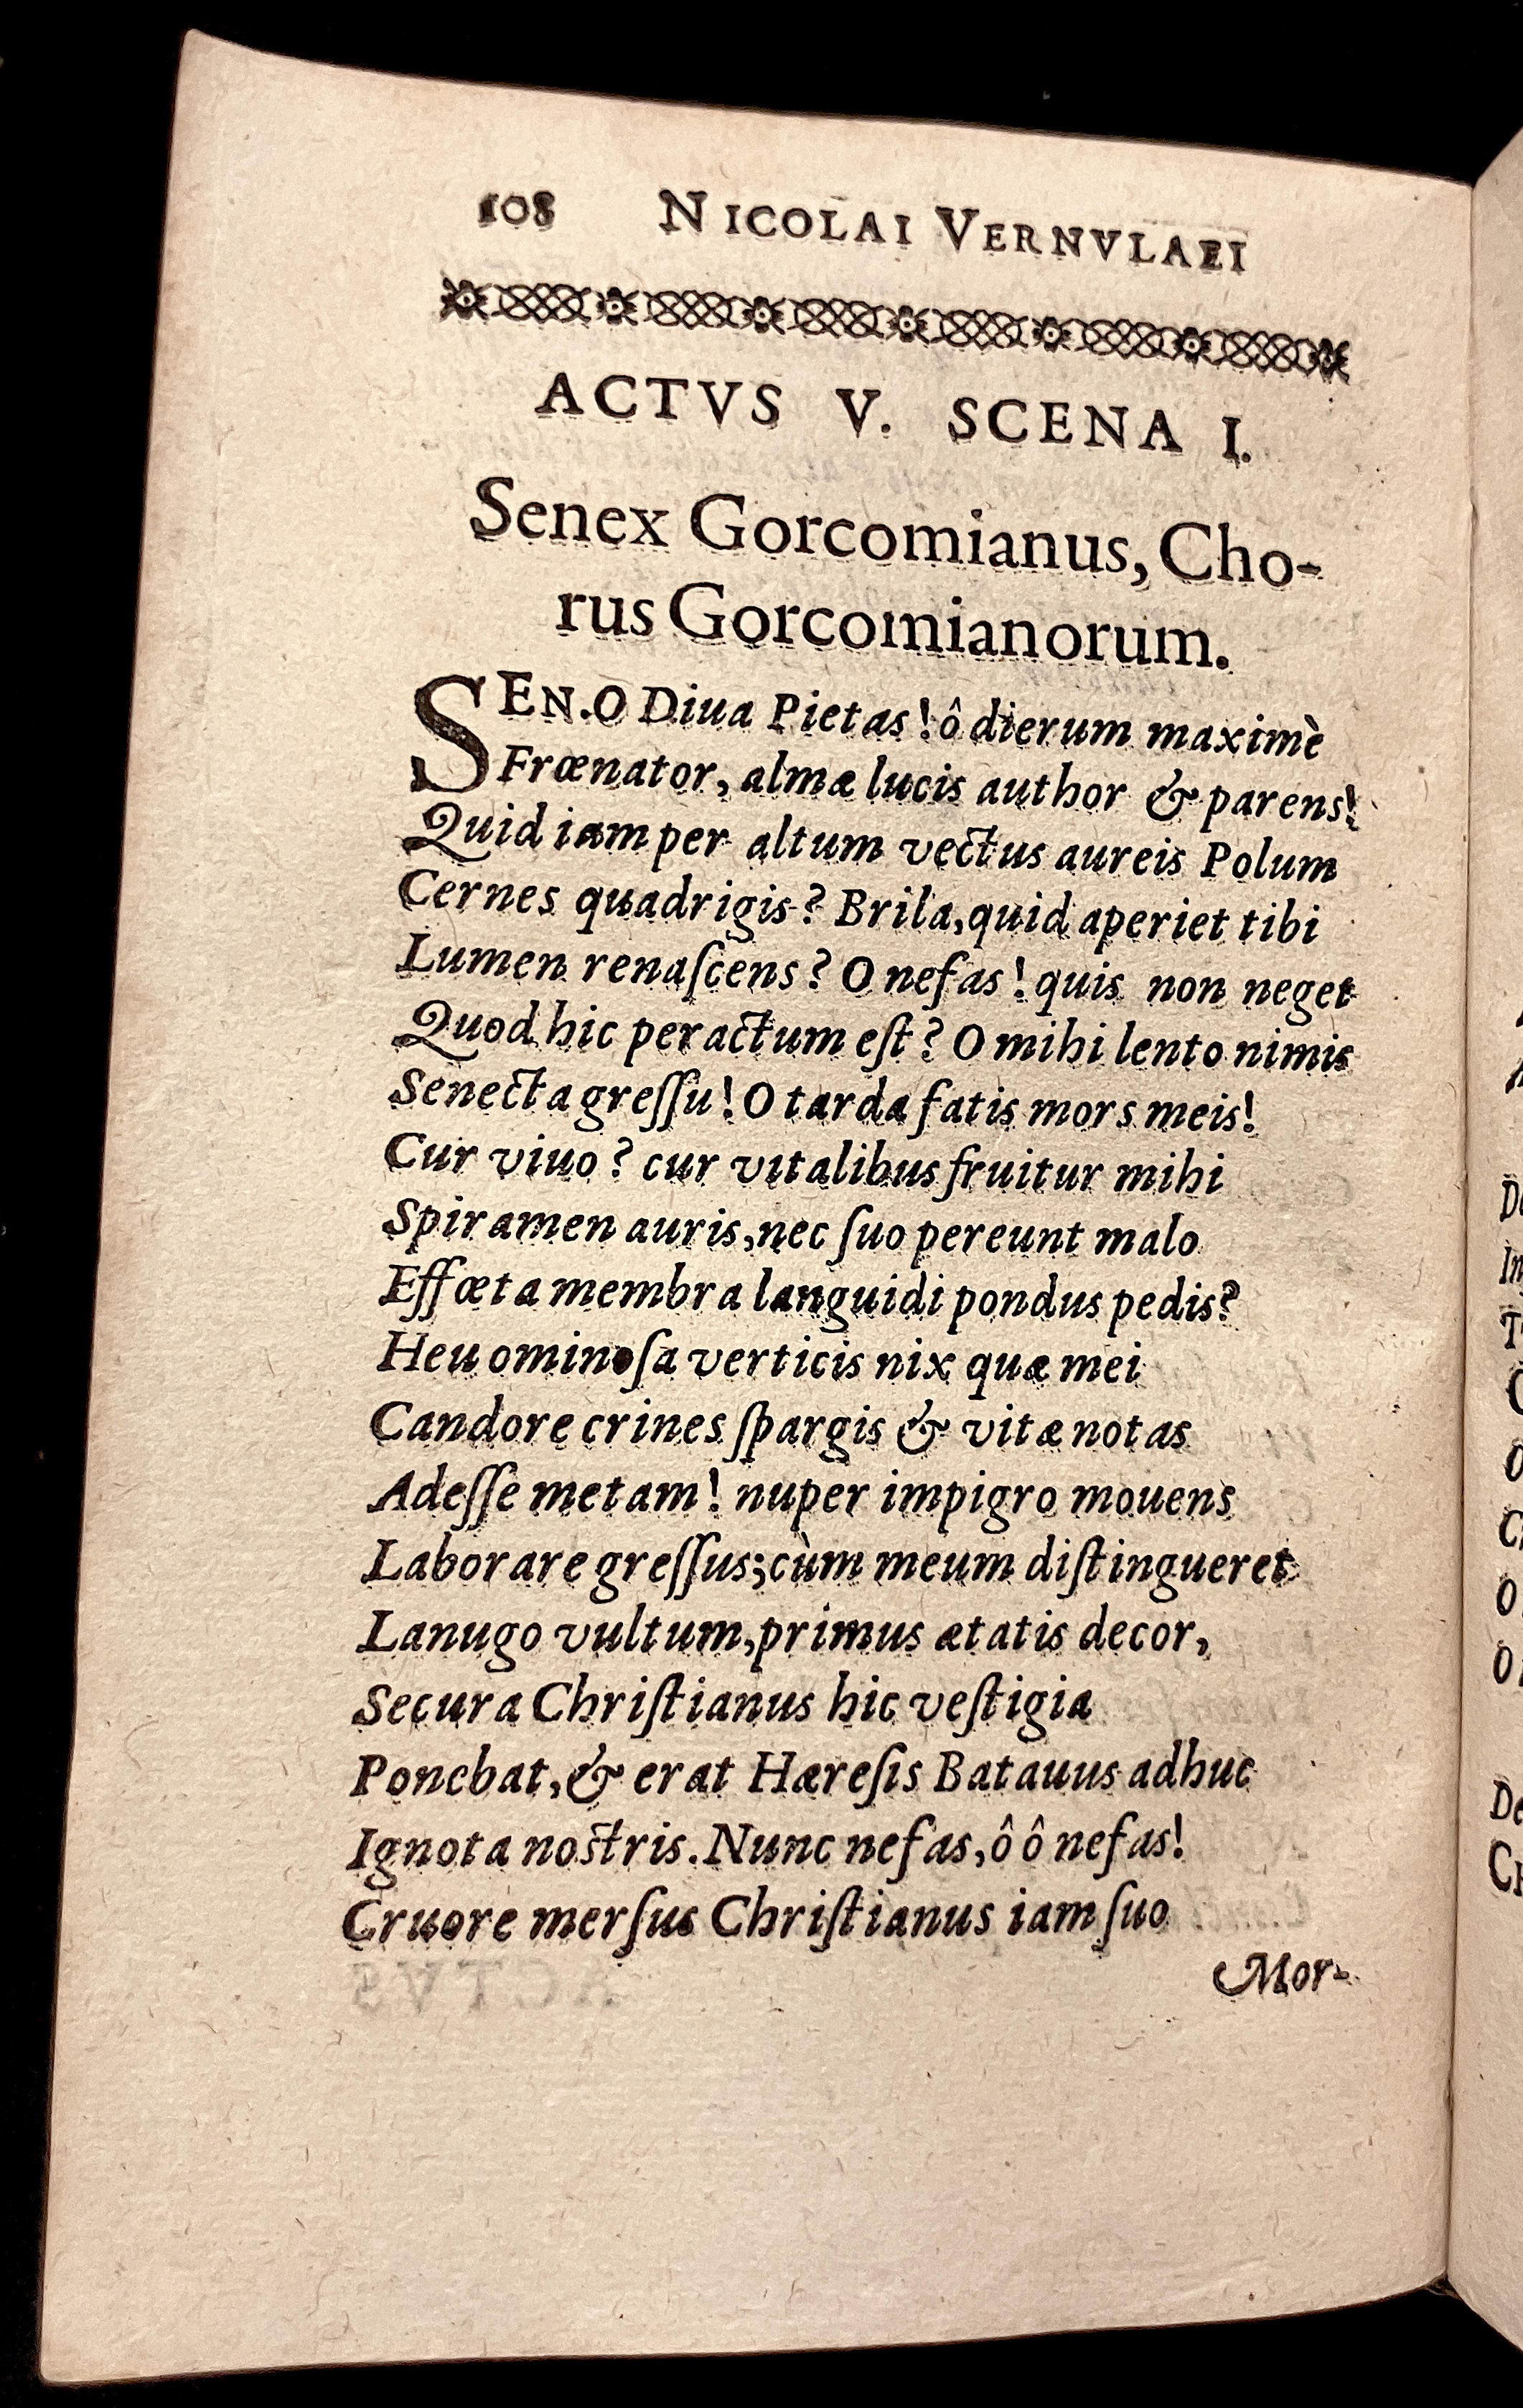 108 NICOLAI VERNVLAEI
ACTVS V. SCENA I.
Senex Gorcomianus, Cho-
rus Gorcomianorum.
SEN. O Diua Pietas! ô dierum maximè
Frœnator, almæ lucis author & parens!
Quid iam per altum vectus aureis Polum
Cernes quadrigis? Brila, quid aperiet tibi
Lumen renaſcens? O nefas! quis non neget
Quod hic peractum eſt? O mihi lento nimis
Senecta greſſu! O tarda fatis mors meis!
Cur viuo? cur vitalibus fruitur mihi
Spiramen auris, nec ſuo pereunt malo
Effœta membra languidi pondus pedis?
Heu ominoſa verticis nix quæ mei
Candore crines ſpargis & vitæ notas
Adeſſe metam! nuper impigro mouens
Laborare greſſus; cùm meum diſtingueret
Lanugo vultum, primus ætatis decor,
Secura Chriſtianus hic veſtigia
Ponebat, & erat Hæreſis Batauus adhuc
Ignota noſtris. Nunc nefas, ô ô nefas!
Cruore merſus Chriſtianus iam ſuo
Mor-